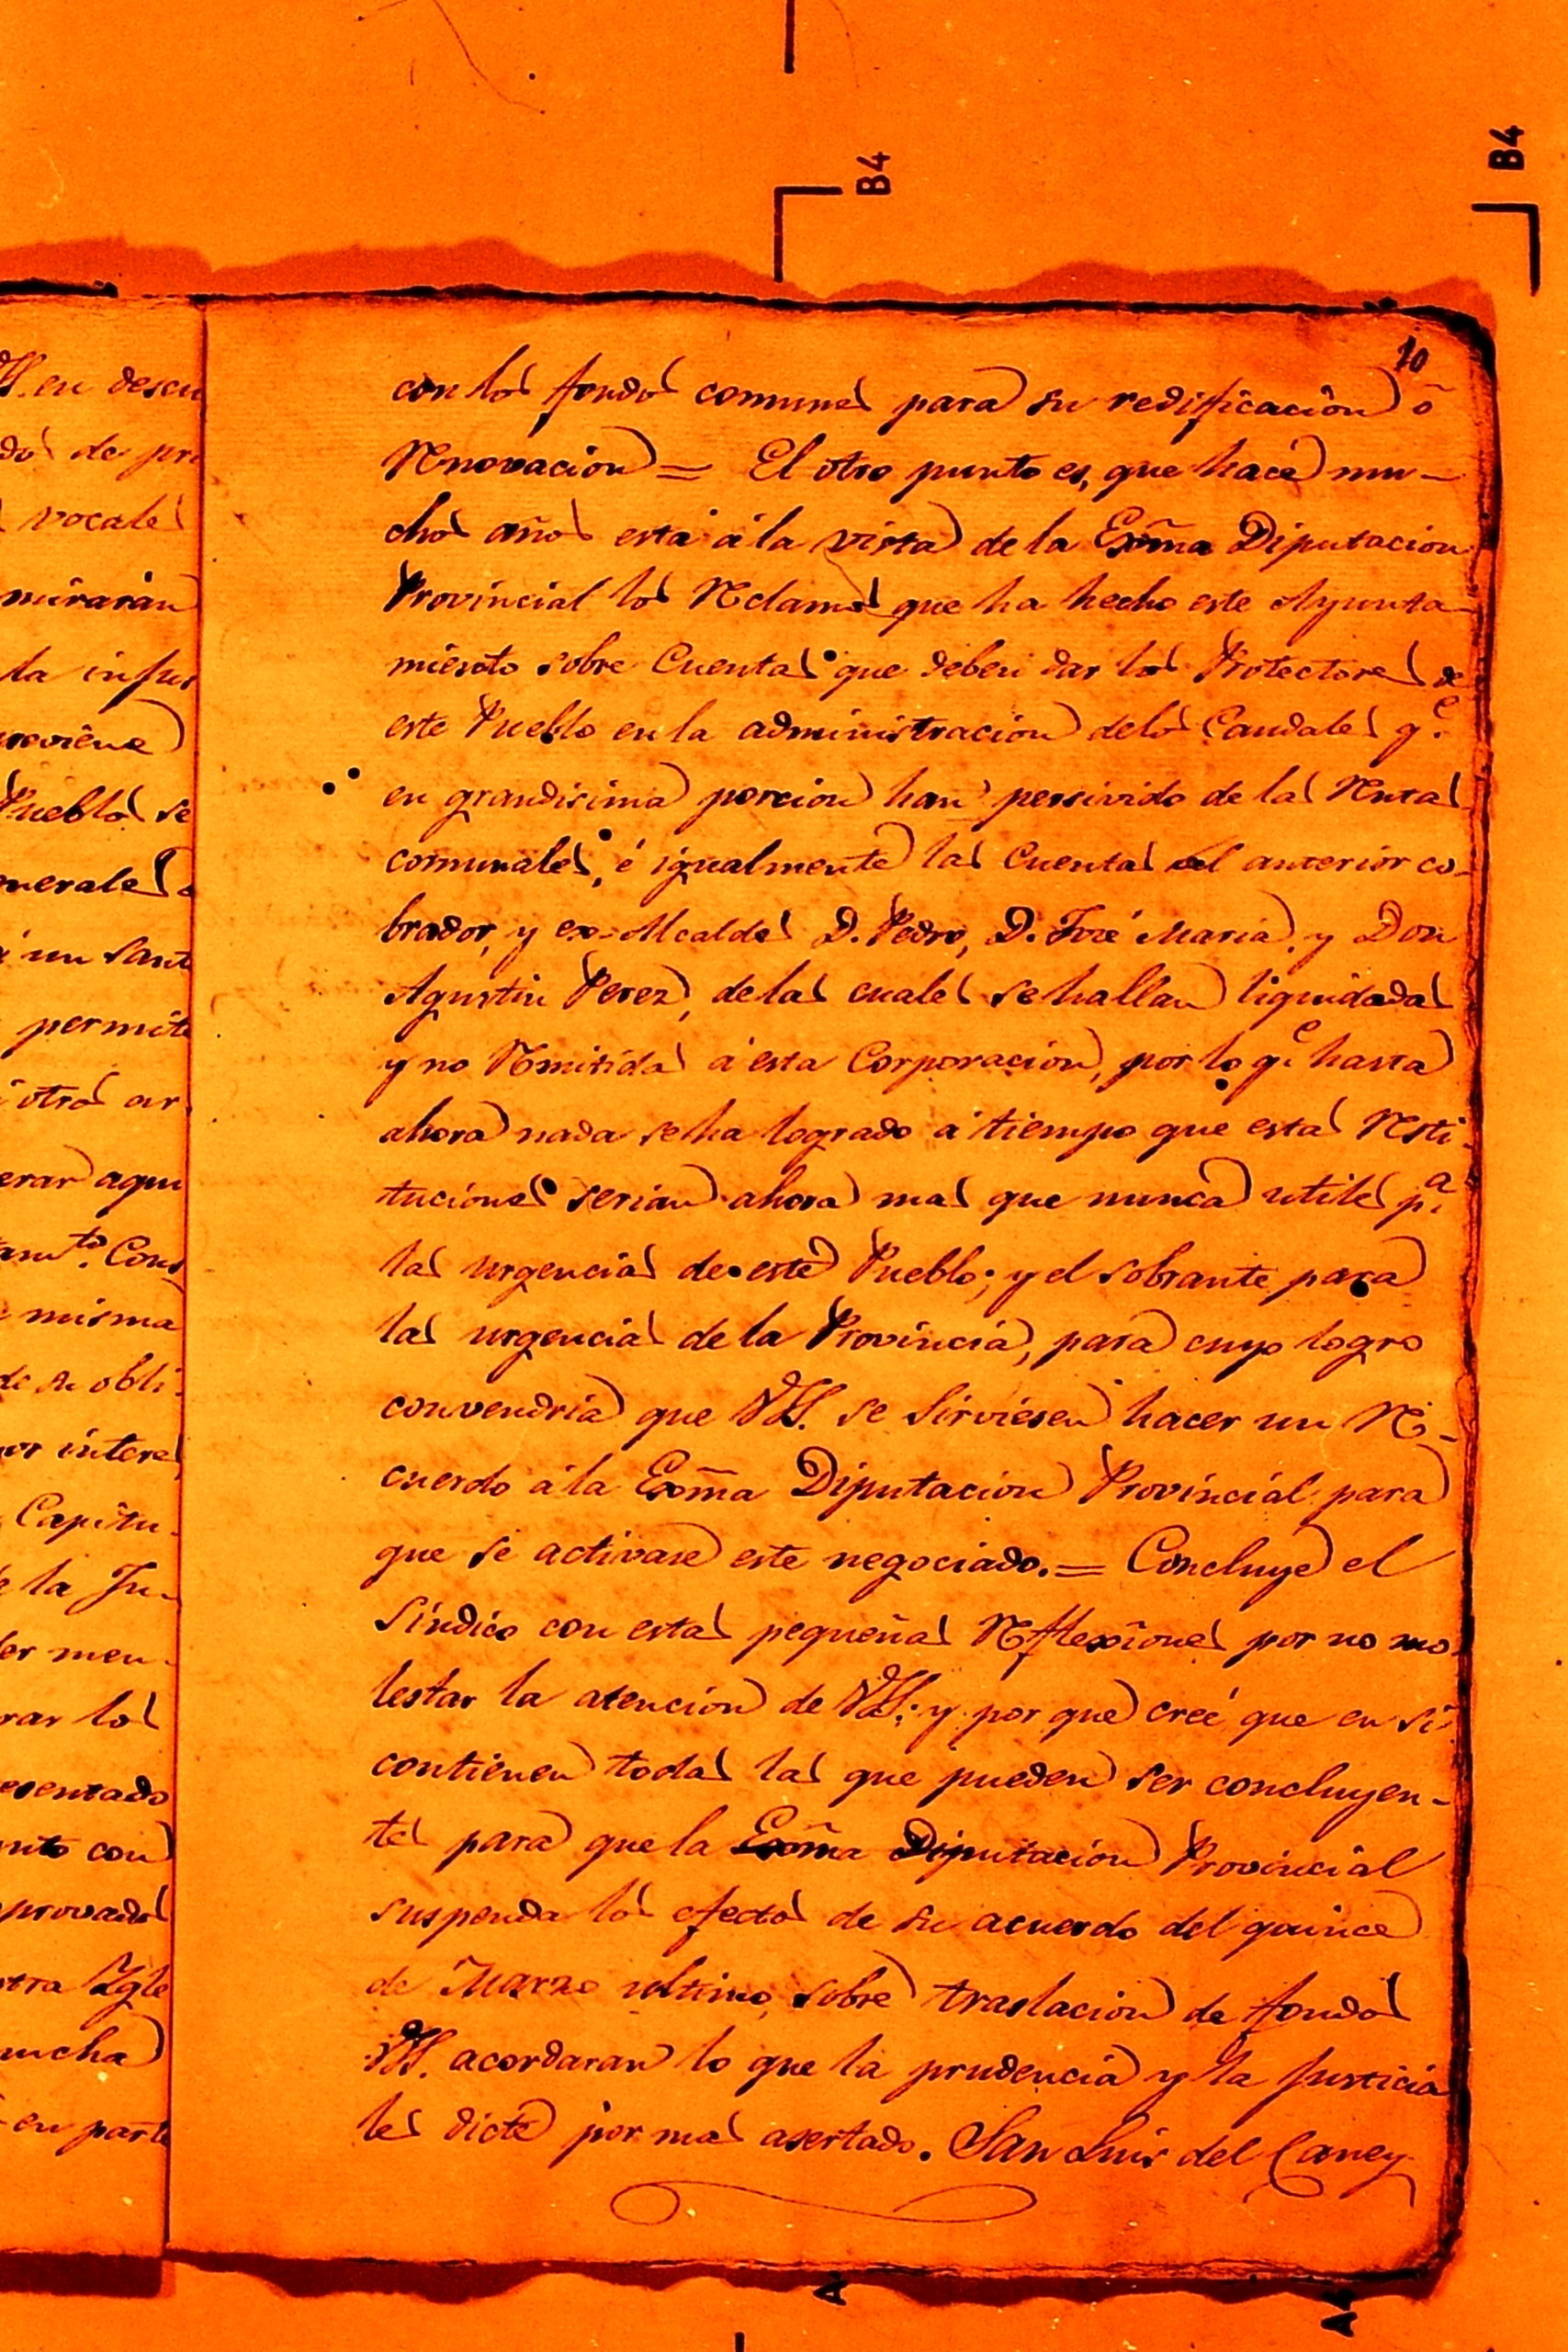 B4
B4
10
con los fondos comunes para su redificación ó
Renovacion = El otro punto es, que hace mu-
chos años está á la vista de la Exm̃a Diputacion
Provincial los Reclamos que ha hecho este Ayunta-
miento sobre Cuentas que deben dar los Protectores de
este Pueblo en la administracion de los Caudales q.e
en grandisima porcion han percivido de las Rentas
comunales, é igualmente las Cuentas del anterior co-
brador, y ex-Alcaldes D. Pedro, D. José Maria, y Don
Agustin Perez, de las cuales se hallan liquidadas
y no Remitidas á esta Corporacion, por lo q.e hasta
ahora nada se ha logrado á tiempo que estas Resti-
tuciones serian ahora mas que nunca utiles p.a
las urgencias de este Pueblo; y el sobrante para
las urgencias de la Provincia, para cuyo logro
convendria que VSS. se sirviesen hacer un Re-
cuerdo á la Exm̃a Diputacion Provincial para
que se activase este negociado. = Concluye el
Síndico con estas pequeñas Reflexiones por no mo-
lestar la atención de VSS; y por que creé que en sí
contienen todas las que pueden ser concluyen-
tes para que la Exm̃a Diputación Provincial
suspenda los efectos de su acuerdo del quince
de Marzo ultimo, sobre traslacion de fondos
VSS. acordaran lo que la prudencia y la Justicia
les dicte por mas asertado. San Luis del Caney
en descu
de pri
vocales
mirarán
la infus
Pueblos se
enerales
un sant
permite
otros ar
erar aqui
am.to Cons
misma
de su obli-
or interes
Capitu-
la Ju-
er men-
rar los
esentado
nto con
provados
stra Igle
mucha
en parte